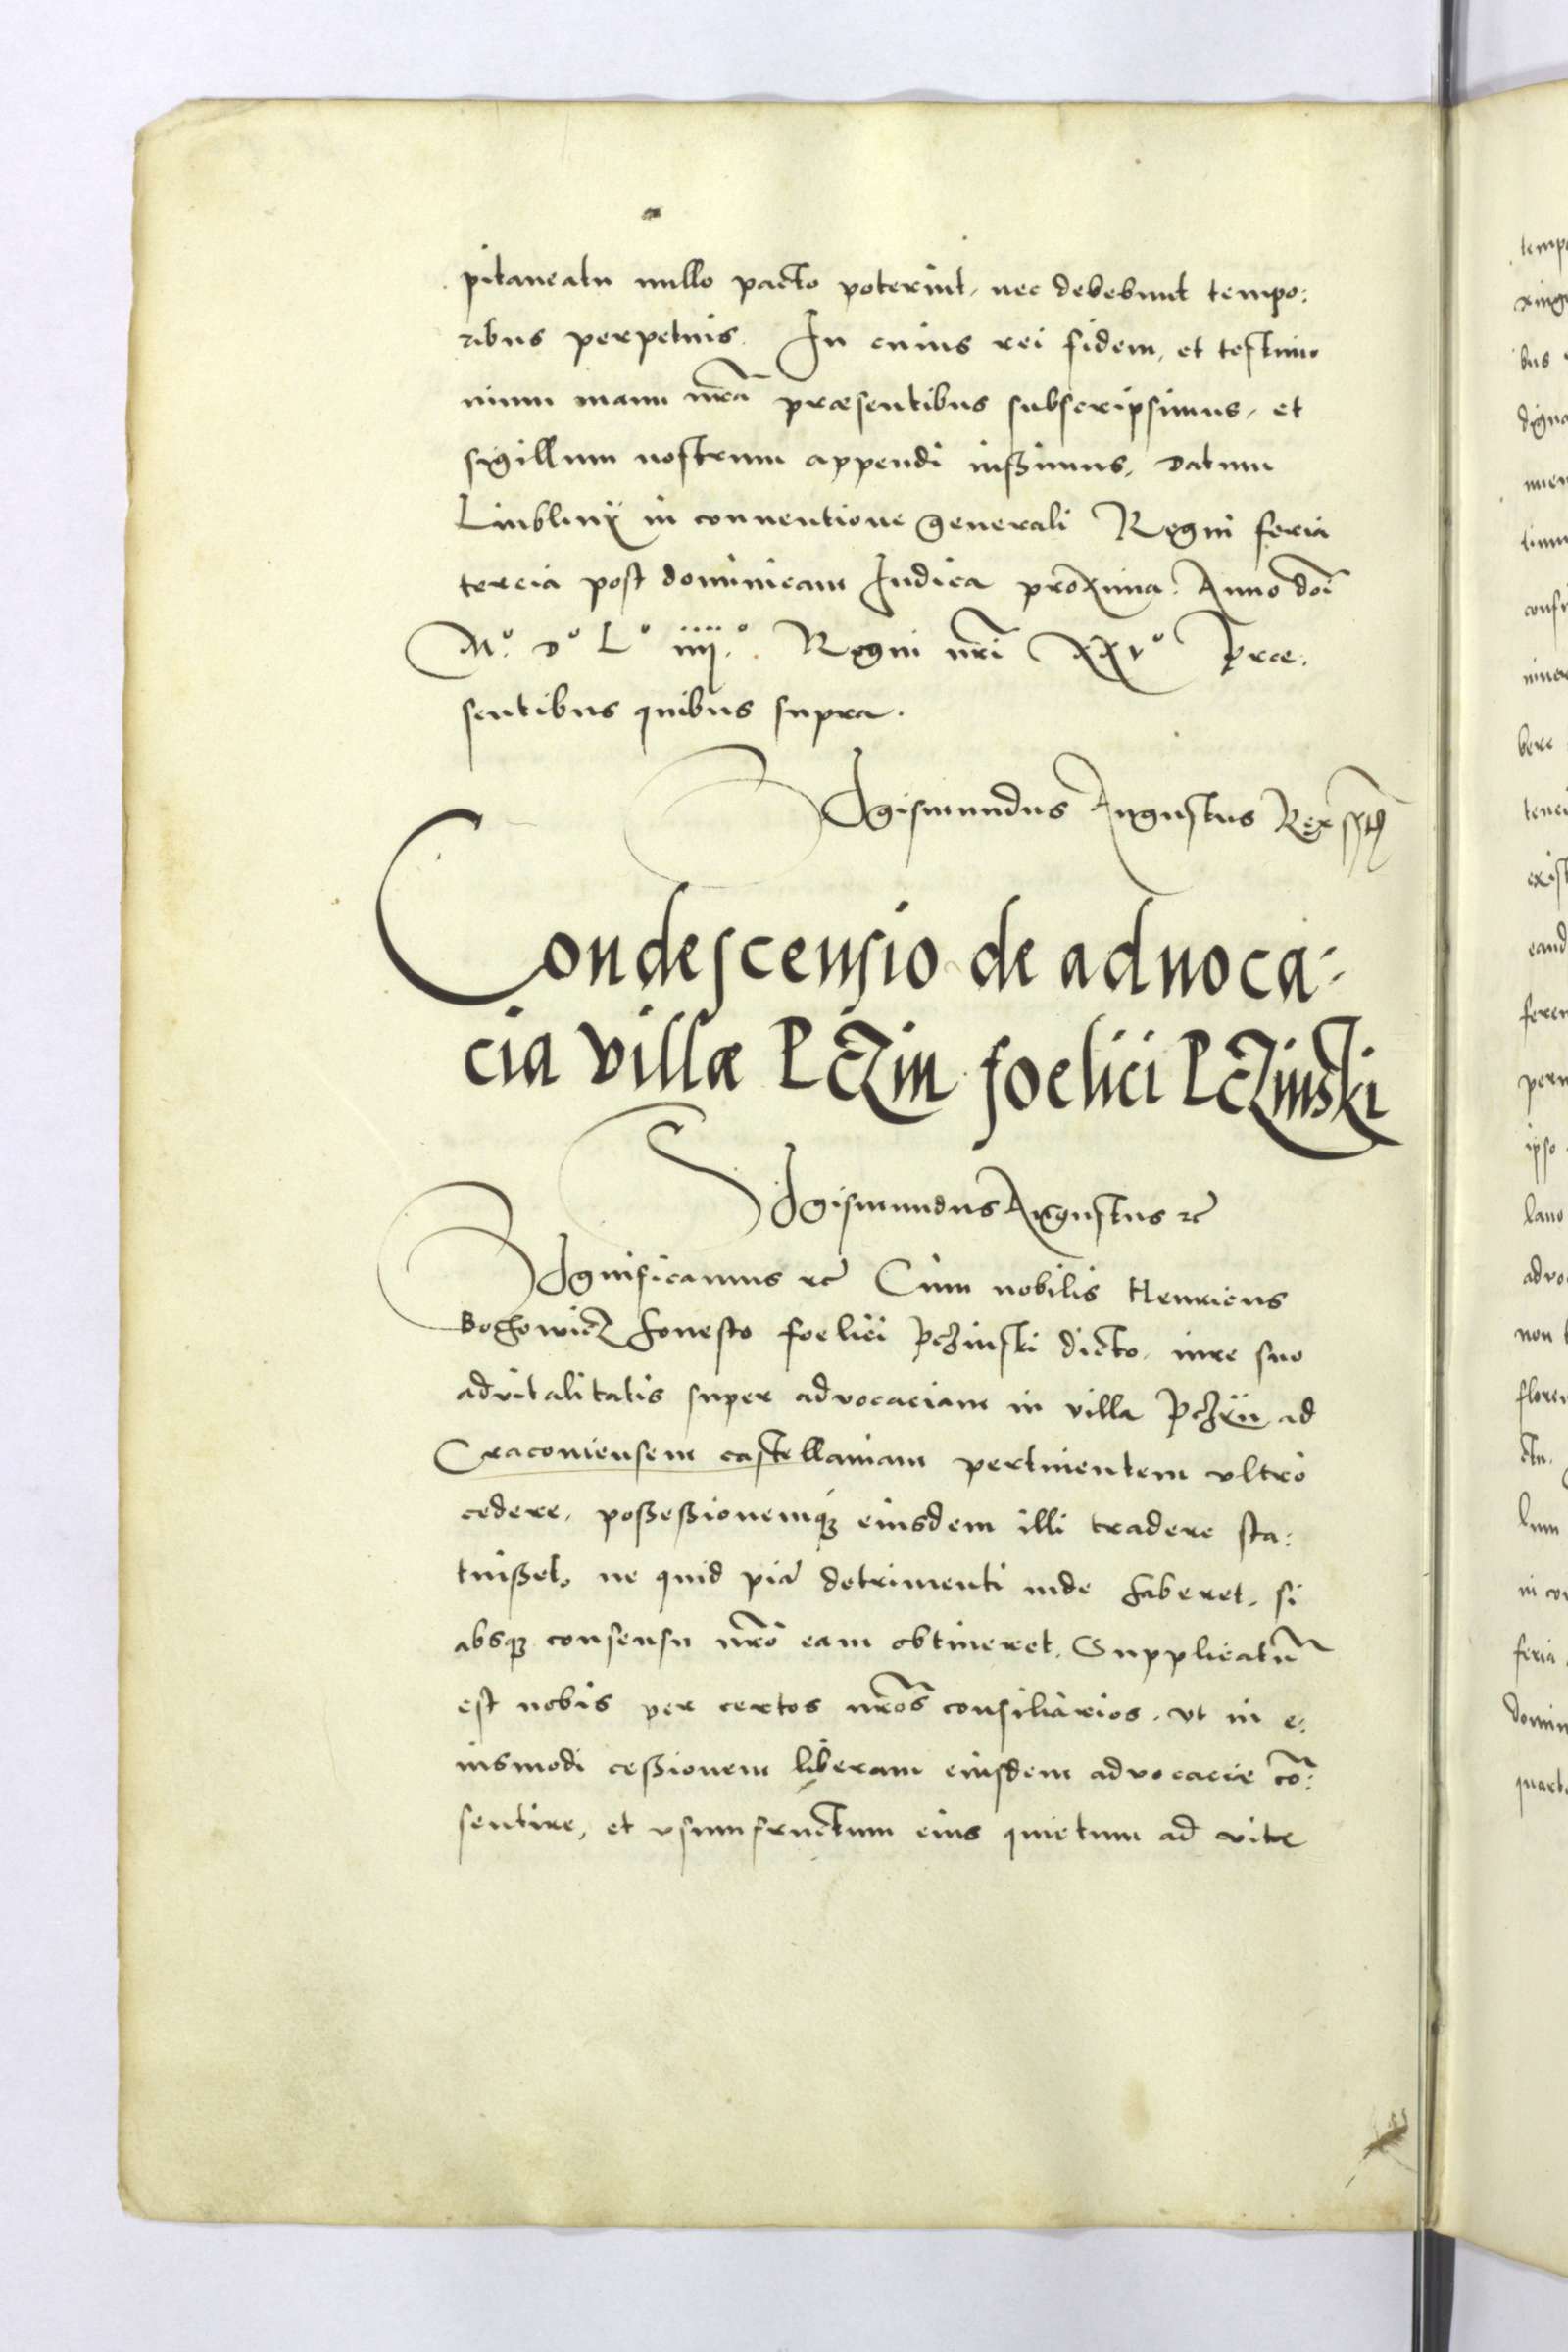 pitaneatu nullo pacto poterint, nec debebunt tempo:
ribus perpetuis. In cuius rei fidem, et testimo
nium manu nrã præsentibus subscripsimus, et
sigillum nostrum appendi iußimus, Datum
Liublinÿ in conuentione generali Regni feria
tercia post dominicam Iudica proxima. Anno doĩ
Mº. Dº Lº iiijº. Regni nrĩ XXVº Præ:
sentibus quibus supra.
Sigismundus Augustus Rex sst
Condescensio de aduoca:
cia villæ Pczin foelici Pczinski
Sigismundus Augustus &c
Significamus &c Cum nobilis Henricus
honesto foelici Pczinski dicto, iure suo
aduitalitatis super advocaciam in villa Pczin ad
Cracouiensem castellaniam pertinentem vltro
cedere, poßeßionemq₃ eiusdem illi tradere sta:
tuißet, ne quid detrimenti inde haberet, si
absq₃ consensu nrõ eam obtineret. Supplicatũ
est nobis per certos nrõs consiliarios, vt in e:
iusmodi ceßionem liberam eiusdem advocacie cõ:
sentire, et vsumfructum eius quietum ad vite
tempo
bus
digna
confir
bere
tene
exist
eand
feren
perm
ipso
advo
non
flore
ctu.
lum
in co
feria
domin
quarto